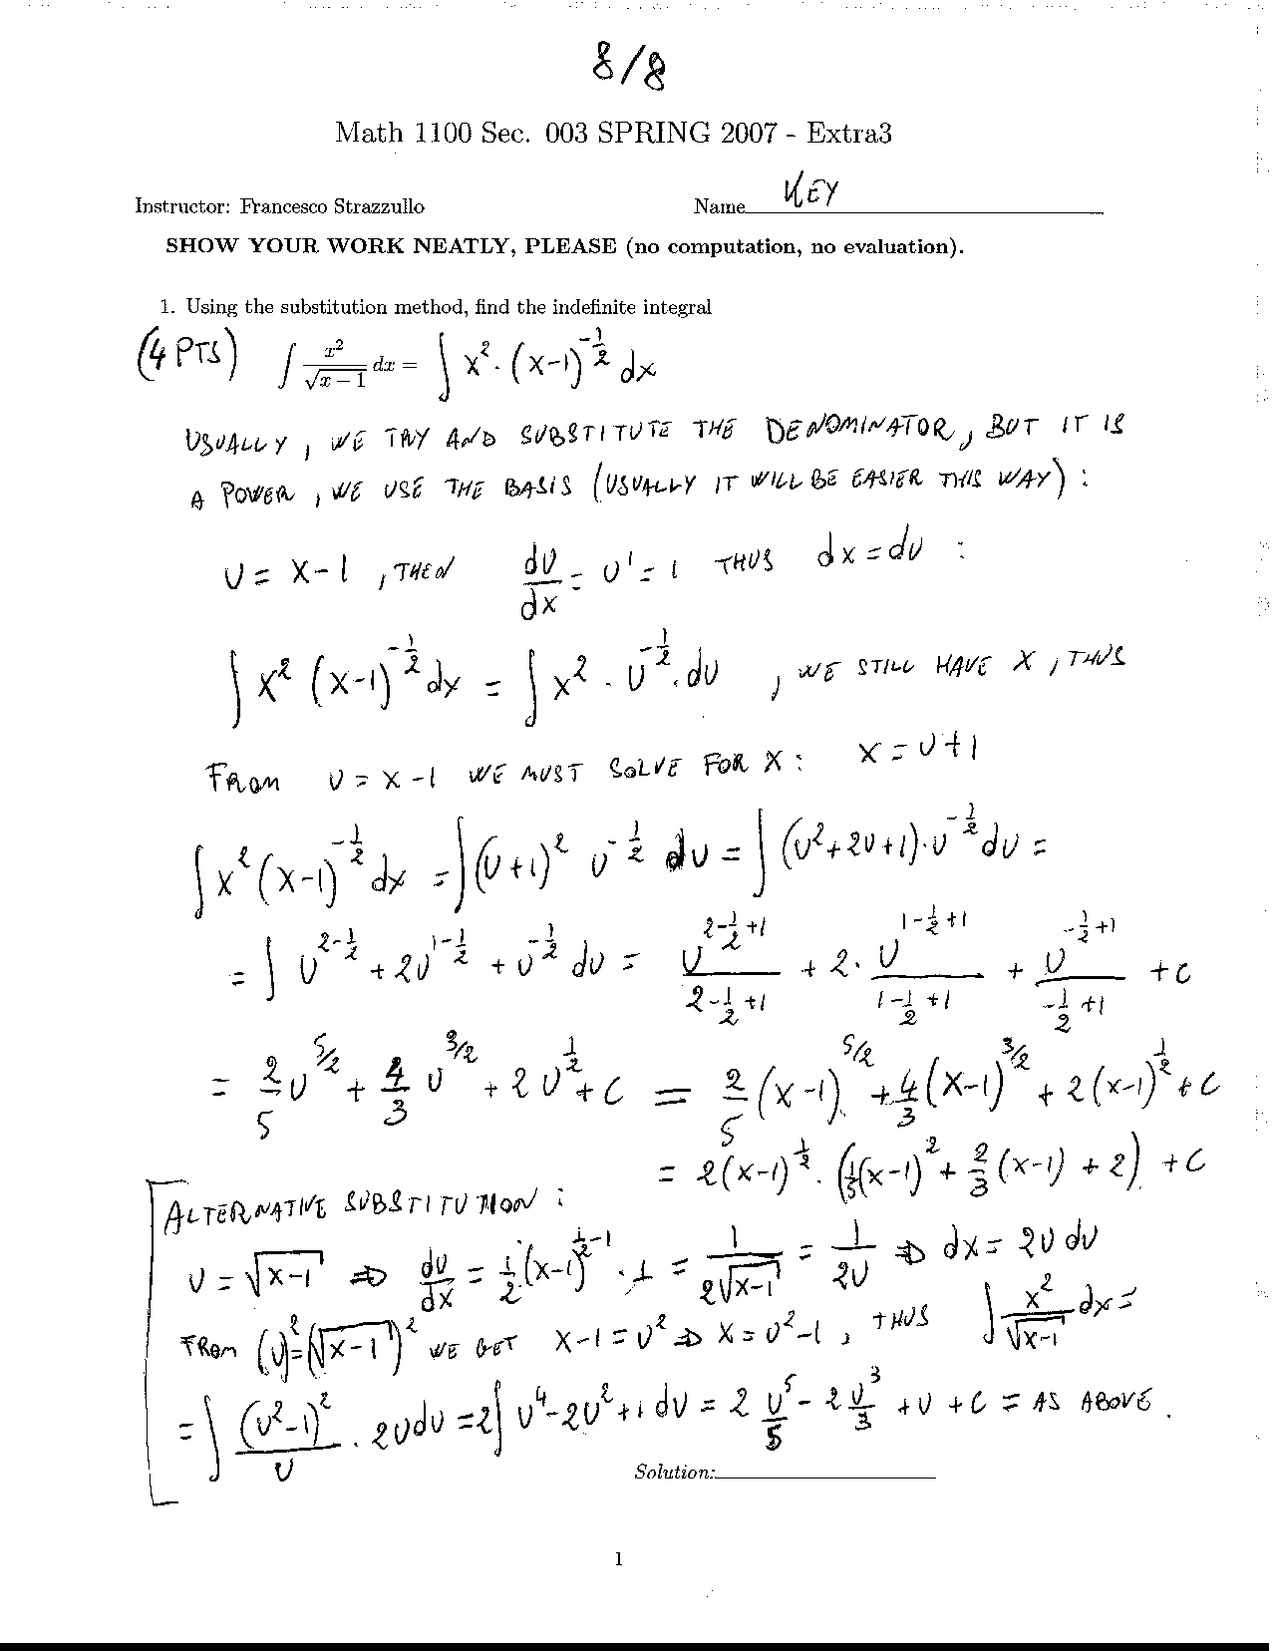 8/8
Math 1100 Sec. 003 SPRING 2007 - Extra3
Instructor: Francesco Strazzullo Name KEY
SHOW YOUR WORK NEATLY, PLEASE (no computation, no evaluation).
1. Using the substitution method, find the indefinite integral
(4 PTS) ∫ x²/√(x−1) dx = ∫ x² · (x−1)^(−1/2) dx
USUALLY, WE TRY AND SUBSTITUTE THE DENOMINATOR, BUT IT IS
A POWER, WE USE THE BASIS (USUALLY IT WILL BE EASIER THIS WAY):
U = X−1, THEN dU/dX = U' = 1 THUS dx = dU :
∫ x² (x−1)^(−1/2) dx = ∫ x² · U^(−1/2) · dU , WE STILL HAVE X, THUS
FROM U = X−1 WE MUST SOLVE FOR X: X = U+1
∫ x² (x−1)^(−1/2) dx = ∫ (U+1)² U^(−1/2) dU = ∫ (U²+2U+1)·U^(−1/2) dU =
= ∫ U^(2−1/2) + 2U^(1−1/2) + U^(−1/2) dU = U^(2−1/2+1)/(2−1/2+1) + 2· U^(1−1/2+1)/(1−1/2+1) + U^(−1/2+1)/(−1/2+1) + C
= 2/5 U^(5/2) + 4/3 U^(3/2) + 2U^(1/2) + C = 2/5 (x−1)^(5/2) + 4/3 (x−1)^(3/2) + 2(x−1)^(1/2) + C
= 2(x−1)^(1/2) · (1/5 (x−1)² + 2/3 (x−1) + 2) + C
ALTERNATIVE SUBSTITUTION:
U = √(x−1) ⇒ dU/dx = 1/2 (x−1)^(1/2−1) · 1 = 1/(2√(x−1)) = 1/(2U) ⇒ dx = 2U dU
FROM (U)² = (√(x−1))² WE GET X−1 = U² ⇒ X = U²−1, THUS ∫ x²/√(x−1) dx =
= ∫ (U²−1)²/U · 2U dU = 2∫ U⁴−2U²+1 dU = 2 U⁵/5 − 2 U³/3 + U + C = AS ABOVE.
Solution:
1